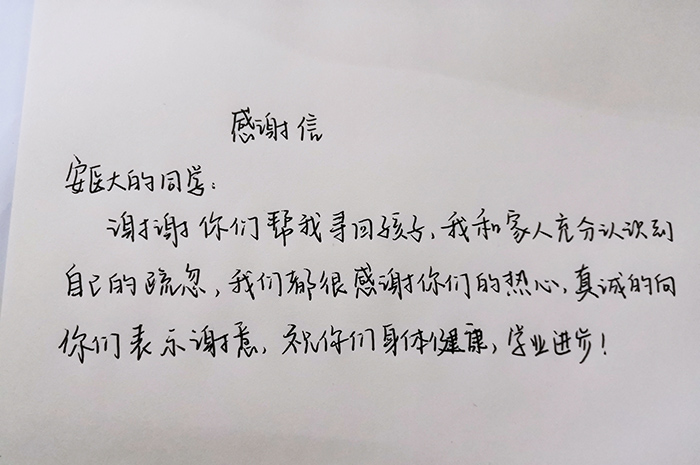 感谢信
安医大的同学：
谢谢你们帮我寻回孩子，我和家人充分认识到
自己的疏忽，我们都很感谢你们的热心，真诚的向
你们表示谢意，祝你们身体健康，学业进步！